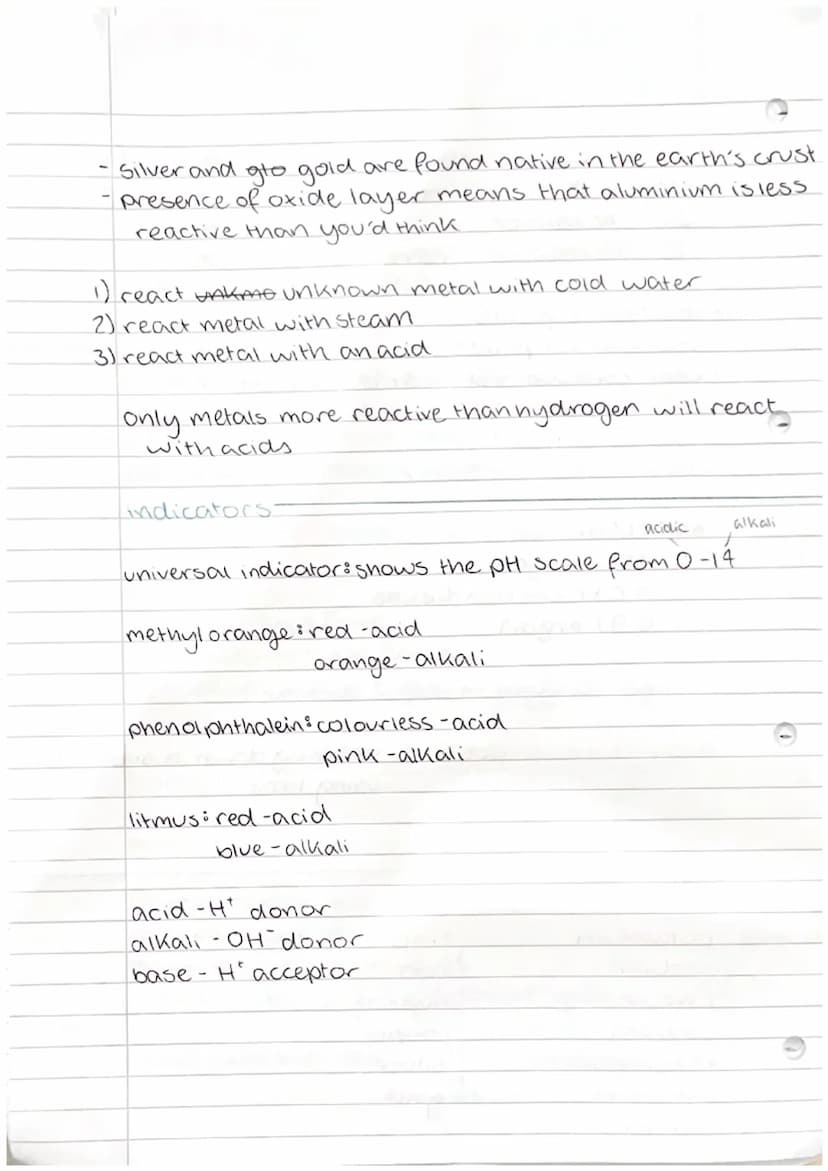 - silver and gto gold are found native in the earth's crust
- presence of oxide layer means that aluminium is less
reactive than you'd think
1) react unkmo unknown metal with cold water
2) react metal with steam
3) react metal with an acid
only metals more reactive than hydrogen will react
with acids
indicators
acidic alkali
universal indicator: shows the pH scale from 0-14
methyl orange: red - acid
orange - alkali
phenolphthalein: colourless - acid
pink - alkali
litmus: red - acid
blue - alkali
acid - H⁺ donor
alkali - OH⁻ donor
base - H⁺ acceptor